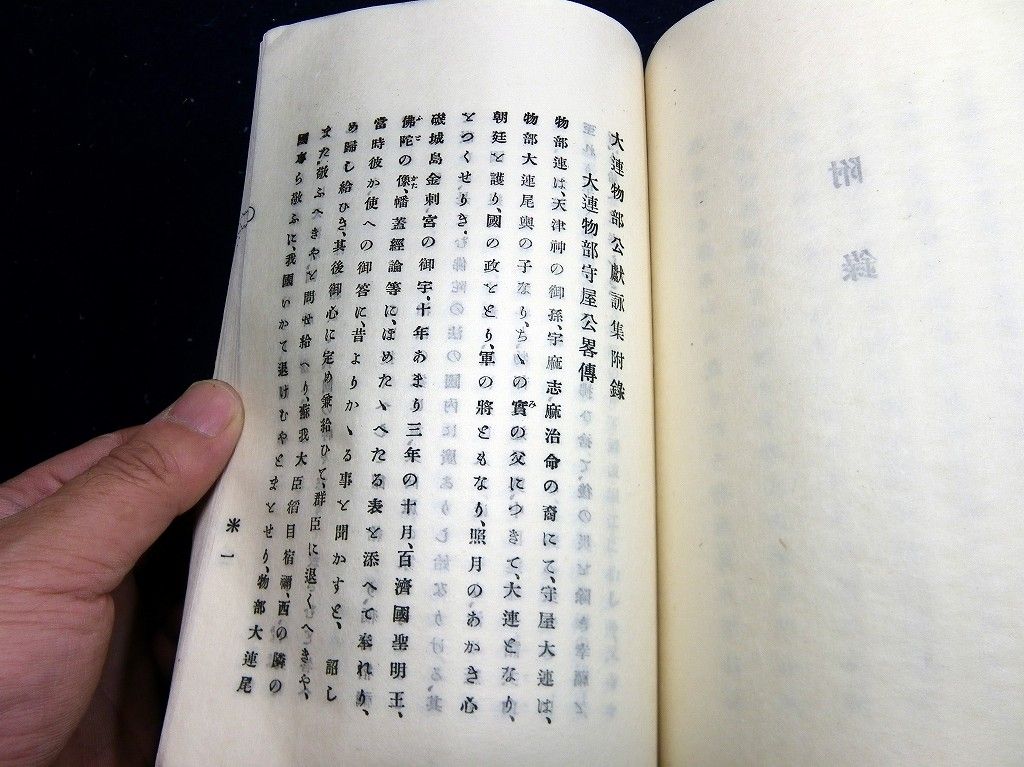 大連物部公獻詠集附錄
大連物部守屋公畧傳
物部連は、天津神の御孫、宇麻志麻治命の裔にて、守屋大連は、
物部大連尾輿の子なり、ちゝの實の父につきて、大連となり、
朝廷と護り、國の政ととり、軍の將ともなり、照月のあかき心
とつくせりき、
磯城島金刺宮の御宇、十年あまり三年の十月、百濟國聖明王、
佛陀の像、幡蓋經論等に、ほめたゝへたる表と添へて奉れり、
當時彼か使への御答に、昔よりかゝる事と聞かすと、詔し
め歸し給ひき、其後御心に定め兼給ひて、群臣に退くへきや、
また敬ふへきやと問せ給へり、蘇我大臣稻目宿禰、西の隣の
國事ら敬ふに、我國いかて退けむやとまとせり、物部大連尾
米一
附錄